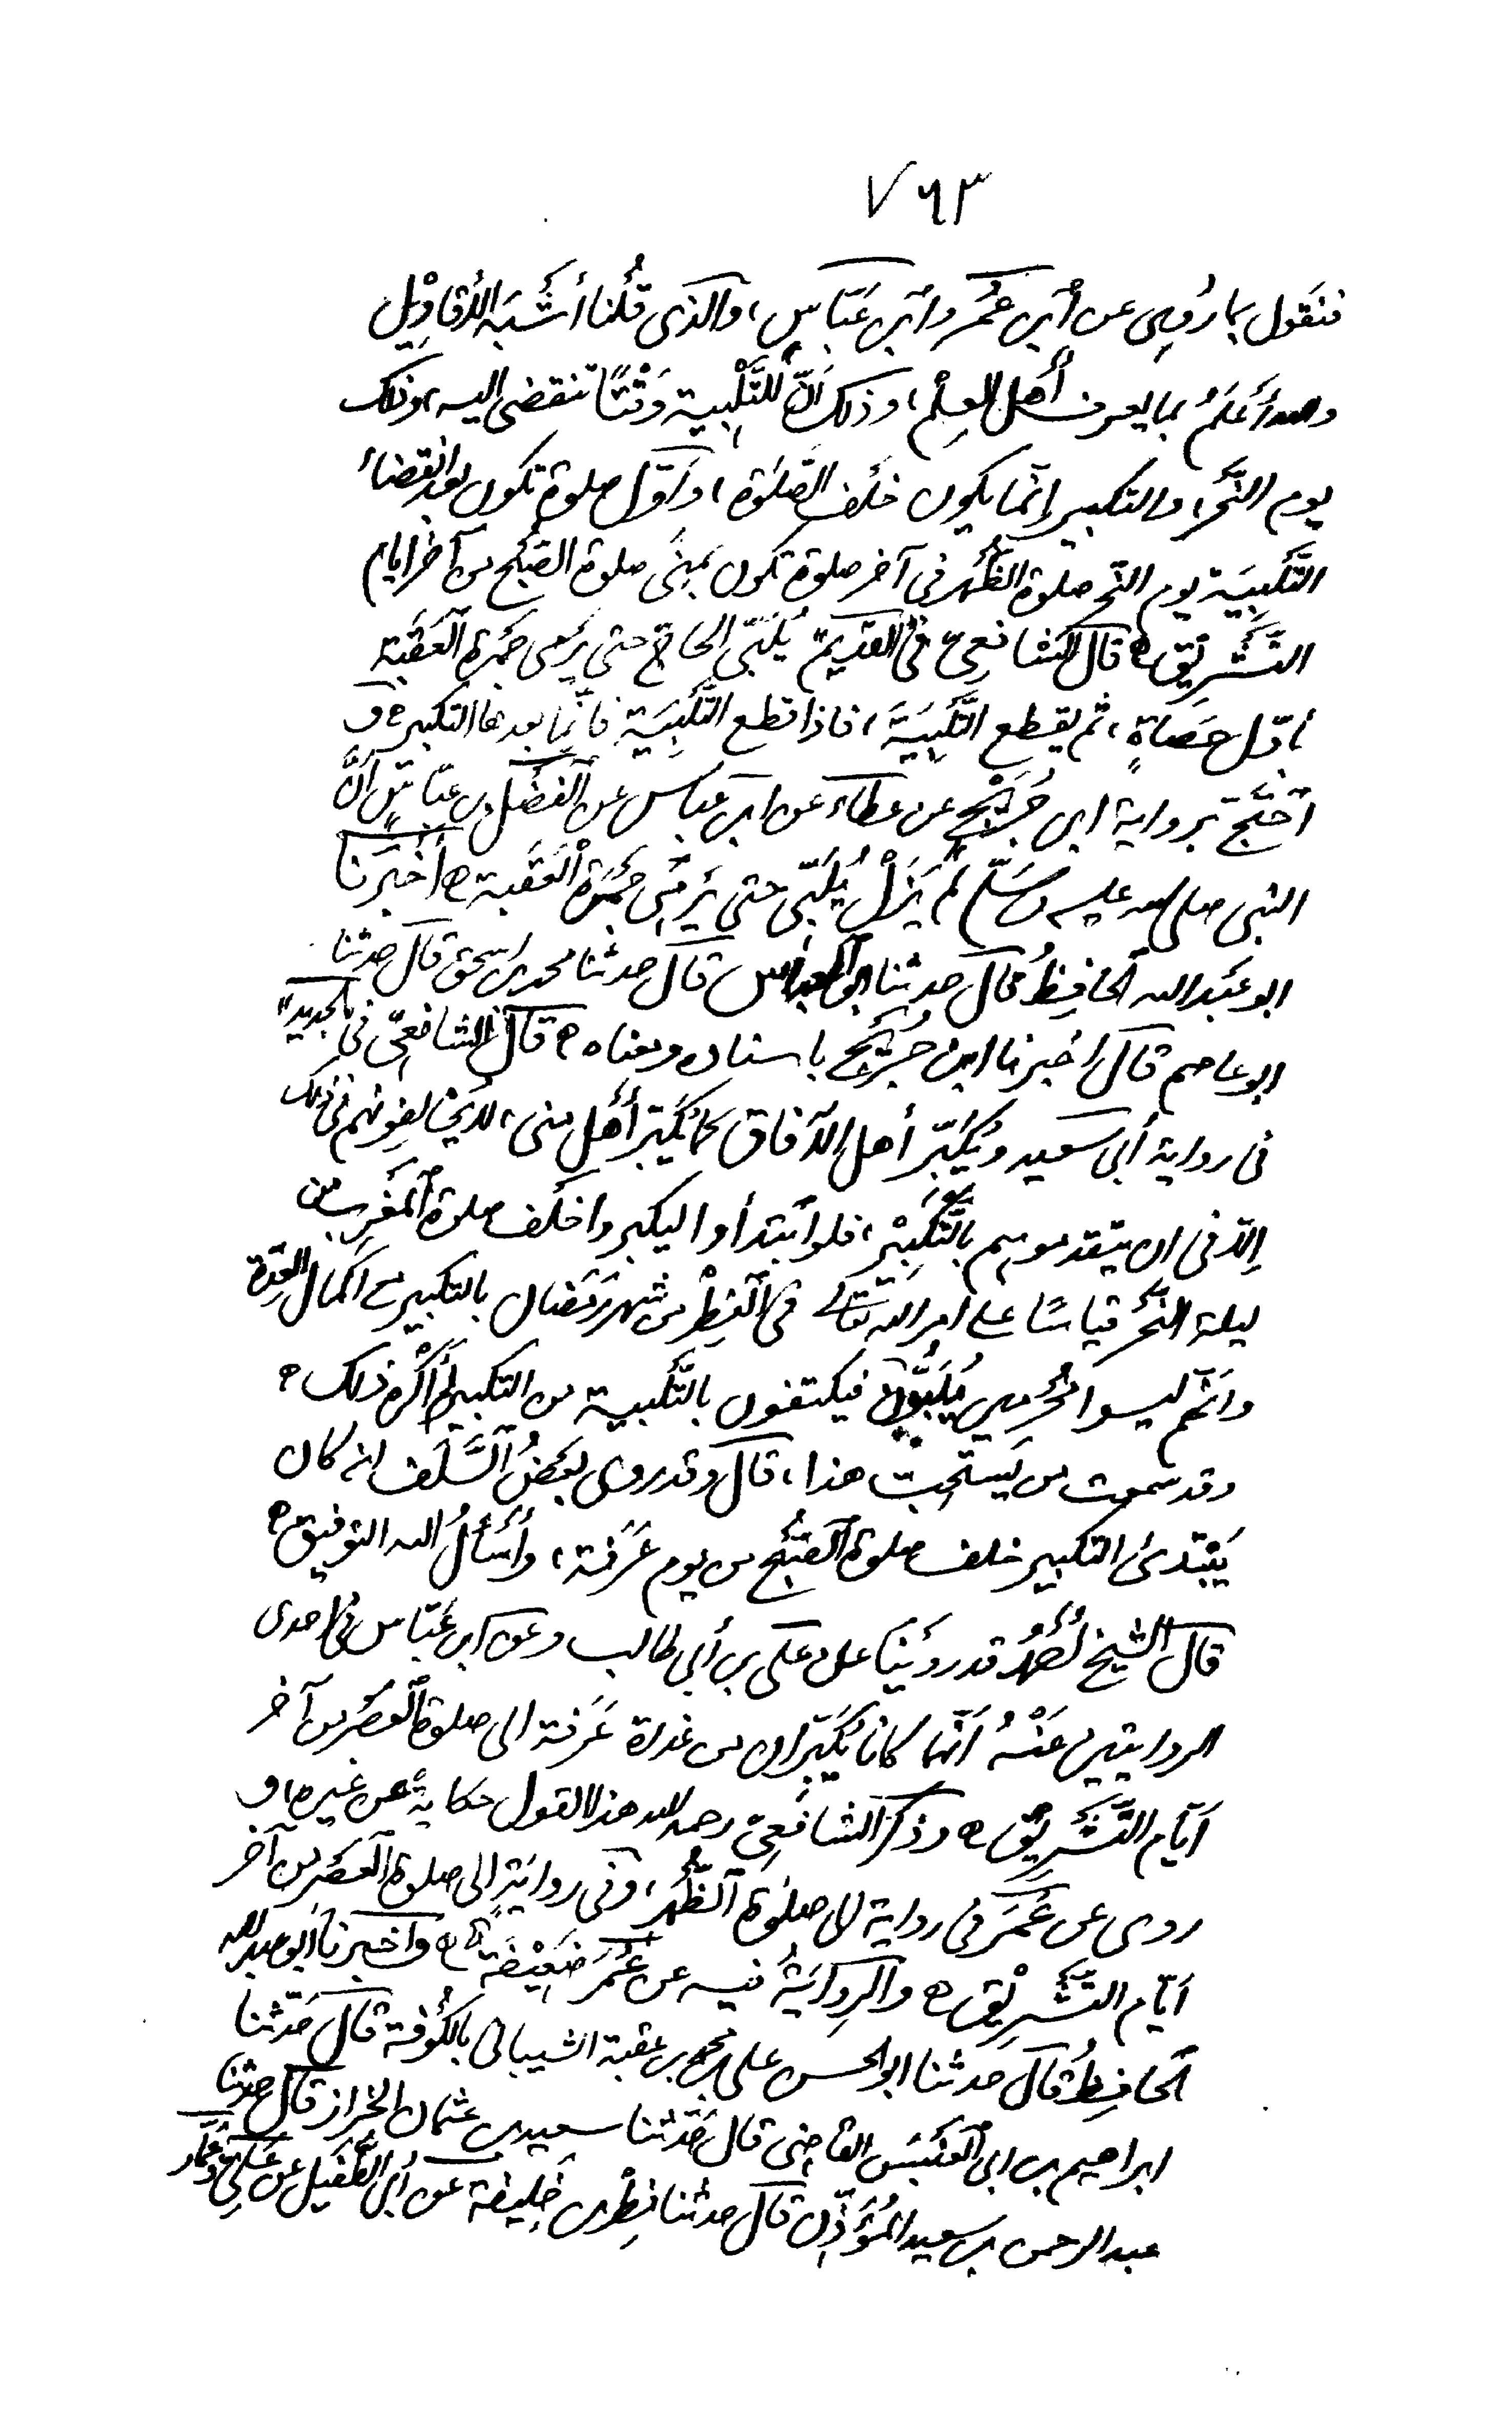 ٧٦٣
فنقول بما رُوِى عن ٱبن عُمَر وٱبن عَبّاس، والذى قُلنا أشبَه الأقاوِيل
والله أَعلَمُ بما يعرف أهل العِلْم، وذلك انّ للتَّلْبِية وَقْتًا تنقضى اليه، وذلك
يوم النَّحر، والتكبير إنّما يكون خَلْف الصَّلوة، وأوّل صلوة تكون بعد انقضاء
التَّلبِيَة يوم النَّحر صلوة الظُّهر فى آخر صلوة تكون بمِنًى صلوة الصُّبْح من آخر ايام
التَّشْرِيق ه قال الشافعِىّ فى القَدِيم يُلَبّى الحاجّ حتى يَرمى جَمرة العَقَبَة
بأوّل حَصَاةٍ، ثم يقطع التَّلبِيَةَ، فاذا قطع التَّلبِيَة فانّما بعدها التكبير ه و
ٱحتَجّ برواية ابن جُرَيْج عن عطاء عن ابن عباس عن الفَضْل بن عبّاس أنّ
النبى صلى الله عليه وسَلّم لم يَزَلْ يُلَبّى حتى يَرمى جَمْرة الْعَقَبة ه أخبَرنا
ابو عَبْد الله الحافِظُ قال حدثنا ابو العباس قال حدثنا محمد بن اسحق قال حدثنا
ابو عاصم قال اخبرنا ابن جُرَيْج باسناده ومعناه ه قال الشافعىّ فى الجديد
فى رواية أبى سعيد ويُكَبّر أهل الآفاق كما يُكَبّر أهْل مِنى، لا يُخالِفونهم فى ذلك
اِلّا فى ان يتقدموهم بالتَّكْبِيْر، فلو ٱبْتدأوا التكبير واخَلْف صلوة المَغْرِب من
ليلة النَّحْر قياسًا على امر الله تعالى فى الْفِطْر من شهر رَمَضان بالتكبير مع اكمال العِدّة
وانّهم ليسوا مُحْرِمين يُلَبُّون فيكتفون بالتَّلْبية من التكبير لم أكْره ذلك ه
وقد سمعت من يَستَحِبّ هذا، قال وقد روى بَعْضُ السَّلَف انه كان
يَبْتدئ التكبير خلف صلوة الصُّبْح من يوم عَرَفة، وأَسْأَلُ الله التوفيق ه
قال الشيخ أحمدُ قد رُوِّينا عن على بن أبى طالب وعن ابن عَبّاس فى احدى
الروايتين عَنْهُ انّهما كانا يُكَبّران من غداة عَرَفة الى صلوة العَصْر من آخر
أيّام التَّشْرِيق ه وذكر الشافعِىّ رحمه الله هذا القول حكايةً عن غيره، و
روى عن عُمَر فى رواية الى صلوة الظُّهْر، وفى روايَةٍ الى صلوة العَصْر من آخر
ايّام التَّشْرِيْق ه والرِوايَةُ فيه عن عُمَر ضَعِيْفَة ه واخبرنا أبو عبد الله
الحافِظُ قال حدثنا ابو الحسن على بن محمد بن عقبة الشيبانى بالكُوفة قال حَدّثنا
ابراهيم بن ابى العَنْبَس القاضى قال حَدّثنا سعيد بن عثمان الخراز قال حدثنا
عبد الرحمن بن سعيد المُؤَذِّن قال حدثنا فِطْر بن خَلِيفة عن أبى الطُّفَيل عن عَلِىّ وعَمّار